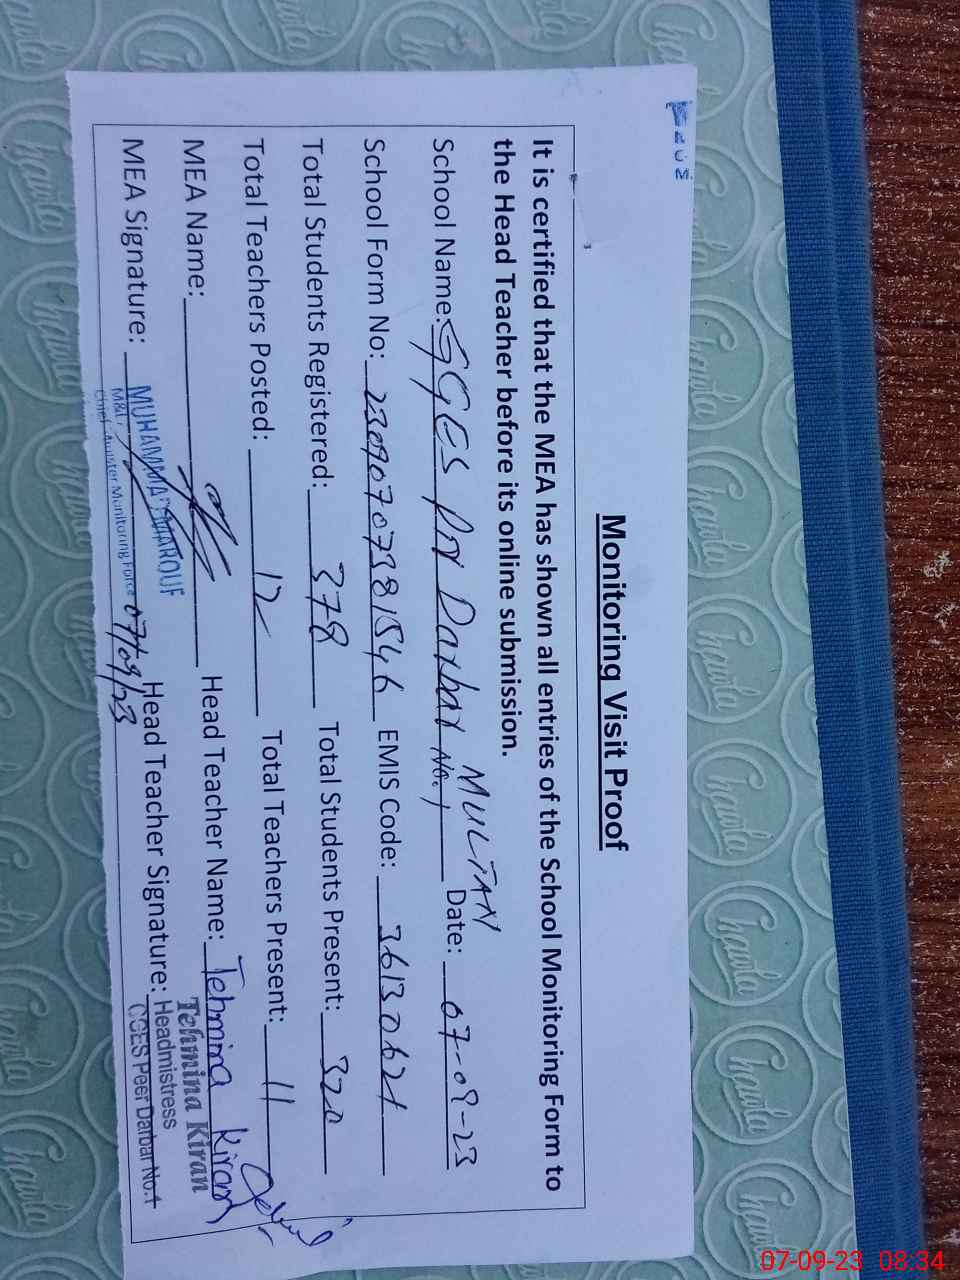 Monitoring Visit Proof
It is certified that the MEA has shown all entries of the School Monitoring Form to
the Head Teacher before its online submission.
School Name: GGES Pir Darbar No.1 MULTAN Date: 07-09-23
School Form No: 23090707381546 EMIS Code: 36130621
Total Students Registered: 378 Total Students Present: 320
Total Teachers Posted: 12 Total Teachers Present: 11
MEA Name: Head Teacher Name: Tehmina Kiran
MEA Signature: Head Teacher Signature:
MUHAMMAD MAROUF
Chief Minister Monitoring Force
07/09/23
Tehmina Kiran
Headmistress
GGES Peer Darbar No.1
Chawla
07-09-23 08:34